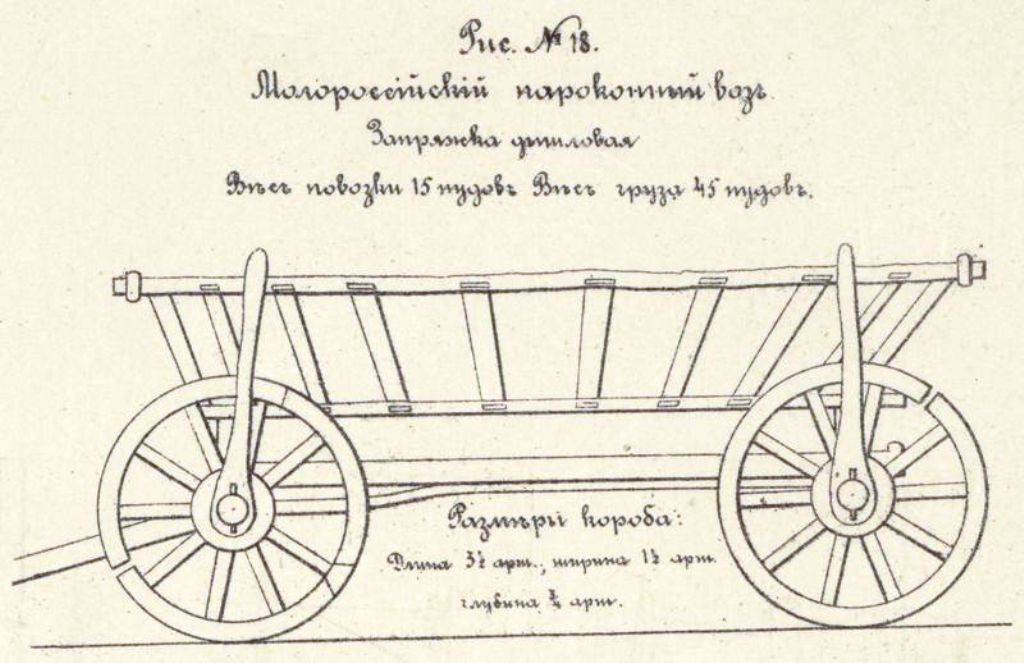 Рис. № 18.
Малороссійскій пароконный возъ.
Запряжка дышловая
Вѣсъ повозки 15 пудовъ Вѣсъ груза 45 пудовъ.
Размѣры короба:
Длина 3½ арш., ширина 1½ арш.
глубина ¾ арш.